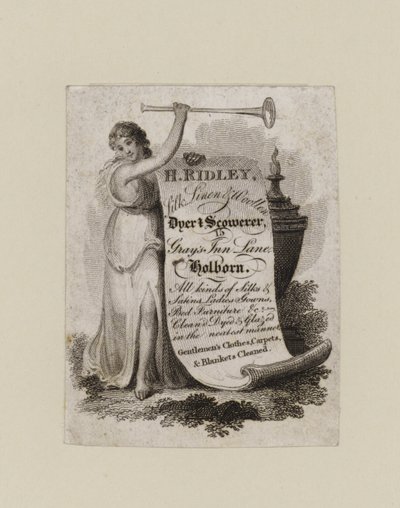 H. RIDLEY,
Silk Linen & Woollen
Dyer & Scowerer,
15
Gray's Inn Lane,
Holborn.
All kinds of Silks &
Satins, Ladies Gowns,
Bed Furniture &c.
Clean'd Dyed & Glazed
in the neatest manner
Gentlemen's Clothes, Carpets,
& Blankets Cleaned.